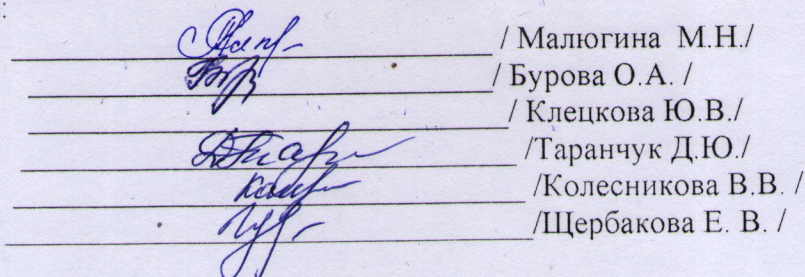 / Малюгина М.Н./
/ Бурова О.А. /
/ Клецкова Ю.В./
/Таранчук Д.Ю./
/Колесникова В.В. /
/Щербакова Е. В. /